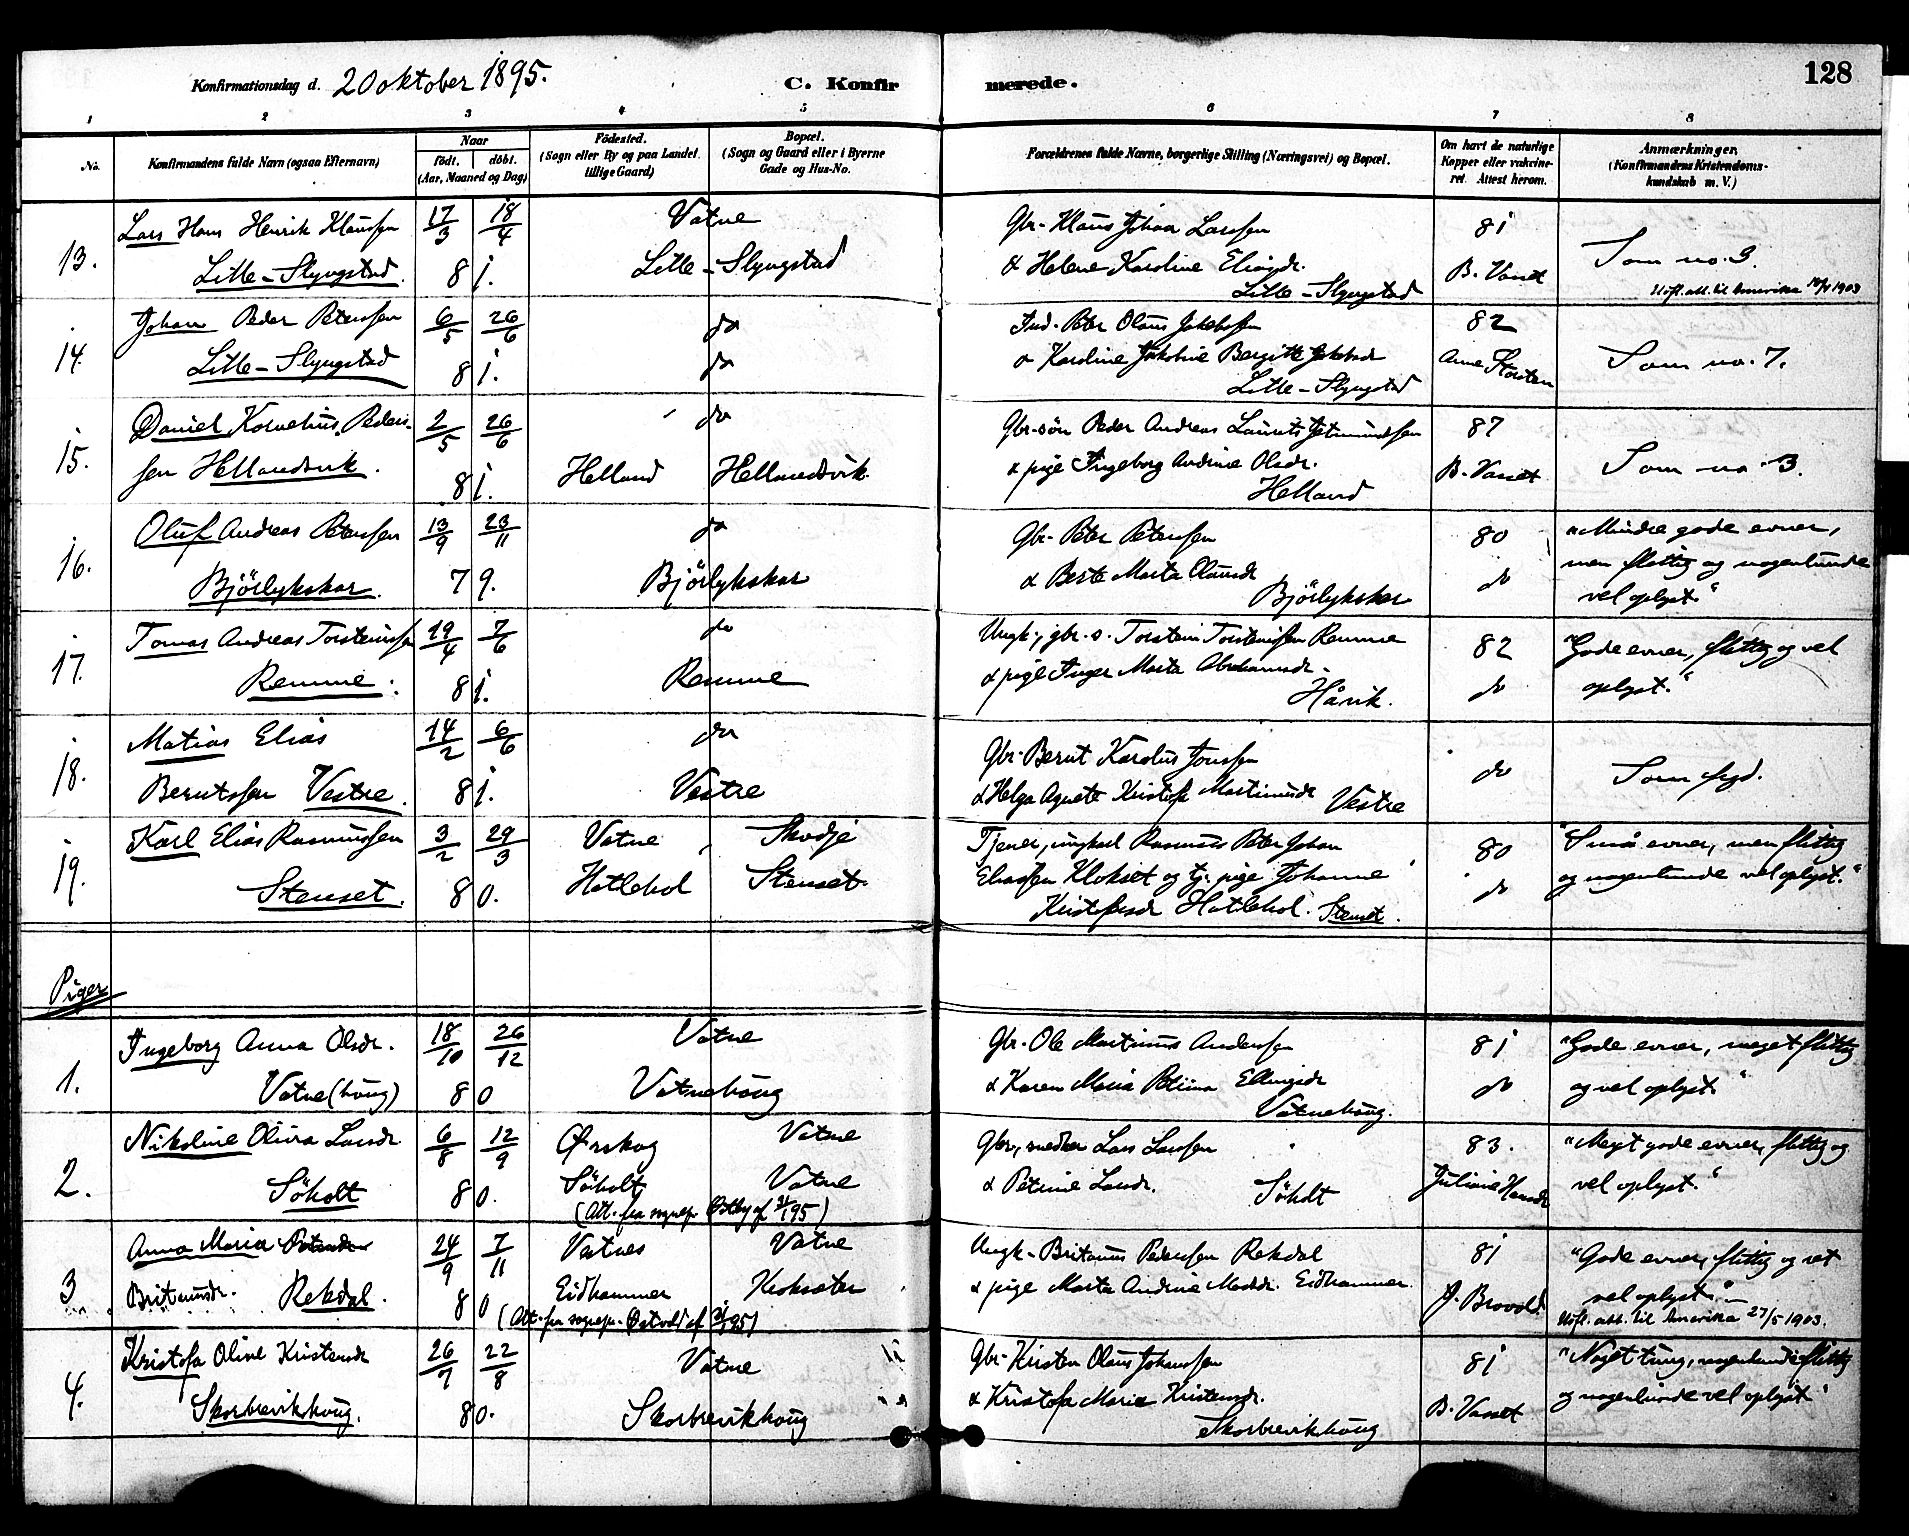 128
Konfirmationsdag d. 20 oktober 1895.
C. Konfirmerede.
1 2 3 4 5 6 7 8
No.
Konfirmandens fulde Navn (ogsaa Efternavn)
Naar
født. døbt.
(Aar, Maaned og Dag)
Fødested.
(Sogn eller By og paa Landet
tillige Gaard)
Bopæl.
(Sogn og Gaard eller i Byerne
Gade og Hus-No.
Forældrenes fulde Navne, borgerlige Stilling (Næringsvei) og Bopæl.
Om havt de naturlige
Kopper eller vakcine-
ret. Attest herom.
Anmærkninger,
(Konfirmandens Kristendoms-
kundskab m. V.)
13. Lars Hans Henrik Klaussen 17/3 18/4 Vatne Gbr. Klaus Johan Larssen 81 Som no. 3.
Lille-Slyngstad. 81. Lille-Slyngstad & Helene Karoline Eliasdr. B. Vasset
Lille-Slyngstad Udfl.att. til Amerika 1903
14. Johan Peder Peterssen 6/5 26/6 do Ind. Peter Olaus Jakobssen 82
Lille-Slyngstad 81. do o Karoline Jakobine Bergitte Anne Torsten Som no. 7.
Lille-Slyngstad
15. Daniel Kornelius Peders- 2/5 26/6 do Gbr-søn Peder Andreas Laurits 87
sen Hellandsvik. 81. Helland Hellandsvik & pige Ingeborg Andrine Olsdr. B. Vasset Som no. 3.
Helland
16. Oluf Andreas Peterssen 13/9 23/11 do Gbr. Peter Peterssen 80 "Mindre gode evner,
Bjørlykskar. 79. Bjørlykskar & Berte Marta Olausdr do men flittig og nogenlunde
Bjørlykskar vel oplyst."
17. Tomas Andreas Torsteinssen 19/4 7/6 do Ungk., gbr. s. Torstein Torsteinssen Remme 82 "Gode evner, flittig og vel
Remme. 81. Remme & pige Inger Marta Abrahamsdr. do oplyst."
Håvik.
18. Matias Elias 14/2 6/6 do Gbr. Bernt Karolus Jonssen
Berntssen Vestre. 81. Vestre & Helga Agnete Kristofa Martinusdr Vestre do Som fgd.
19. Karl Elias Rasmussen 3/2 29/3 Vatne Skodje Tjener, ungkarl Rasmus Peter Johan 80 "Små evner, men flittig
Stenset. 80. Hatlehol Stenset. Eliassen Klokset og tj. pige Johanne do og nogenlunde vel oplyst."
Kristofersdr Hatlehol. Stenset.
Piger
1. Ingeborg Anna Olsdr. 18/10 26/12 Vatne Gbr. Ole Martinus Anderssen 81 "Gode evner, meget flittig
Vatne (houg) 80 Vatnehoug & Karen Maria Petrina Ellingsdr do og vel oplyst."
Vatnehoug.
2. Nikoline Oliva Larsdr 6/8 12/9 Ørskog Vatne Gbr., snedker Lars Larssen 83. "Meget gode evner, flittig og
Søholt 80. Søholt Vatne & Petrine Larsdr. Søholt Juliane Hansdr vel oplyst."
(Att. fra sognepr. Østby af /95)
3. Anna Maria 24/9 7/11 Vestnes Vatne Ungk. Britanus Pederssen Rekdal 81 "Gode evner, flittig og ret
Britanusdr. Rekdal. 80 Eidhammer & pige Marta Andrine Madsdr. Eidhammer. J. Brovold vel oplyst."
(Att. fra sognepr. Østvold af /95) Udfl. att. til Amerika 27/5 1903.
4. Kristofa Oline Kristensdr 26/7 22/8 Vatne Gbr. Kristen Olaus Johanssen 81 "Noget tung, nogenlunde flittig
Skorbrevikhoug. 80. Skorbrevikhoug & Kristofa Marie Kristensdr. B. Vasset og nogenlunde vel oplyst"
Skorbrevikhoug